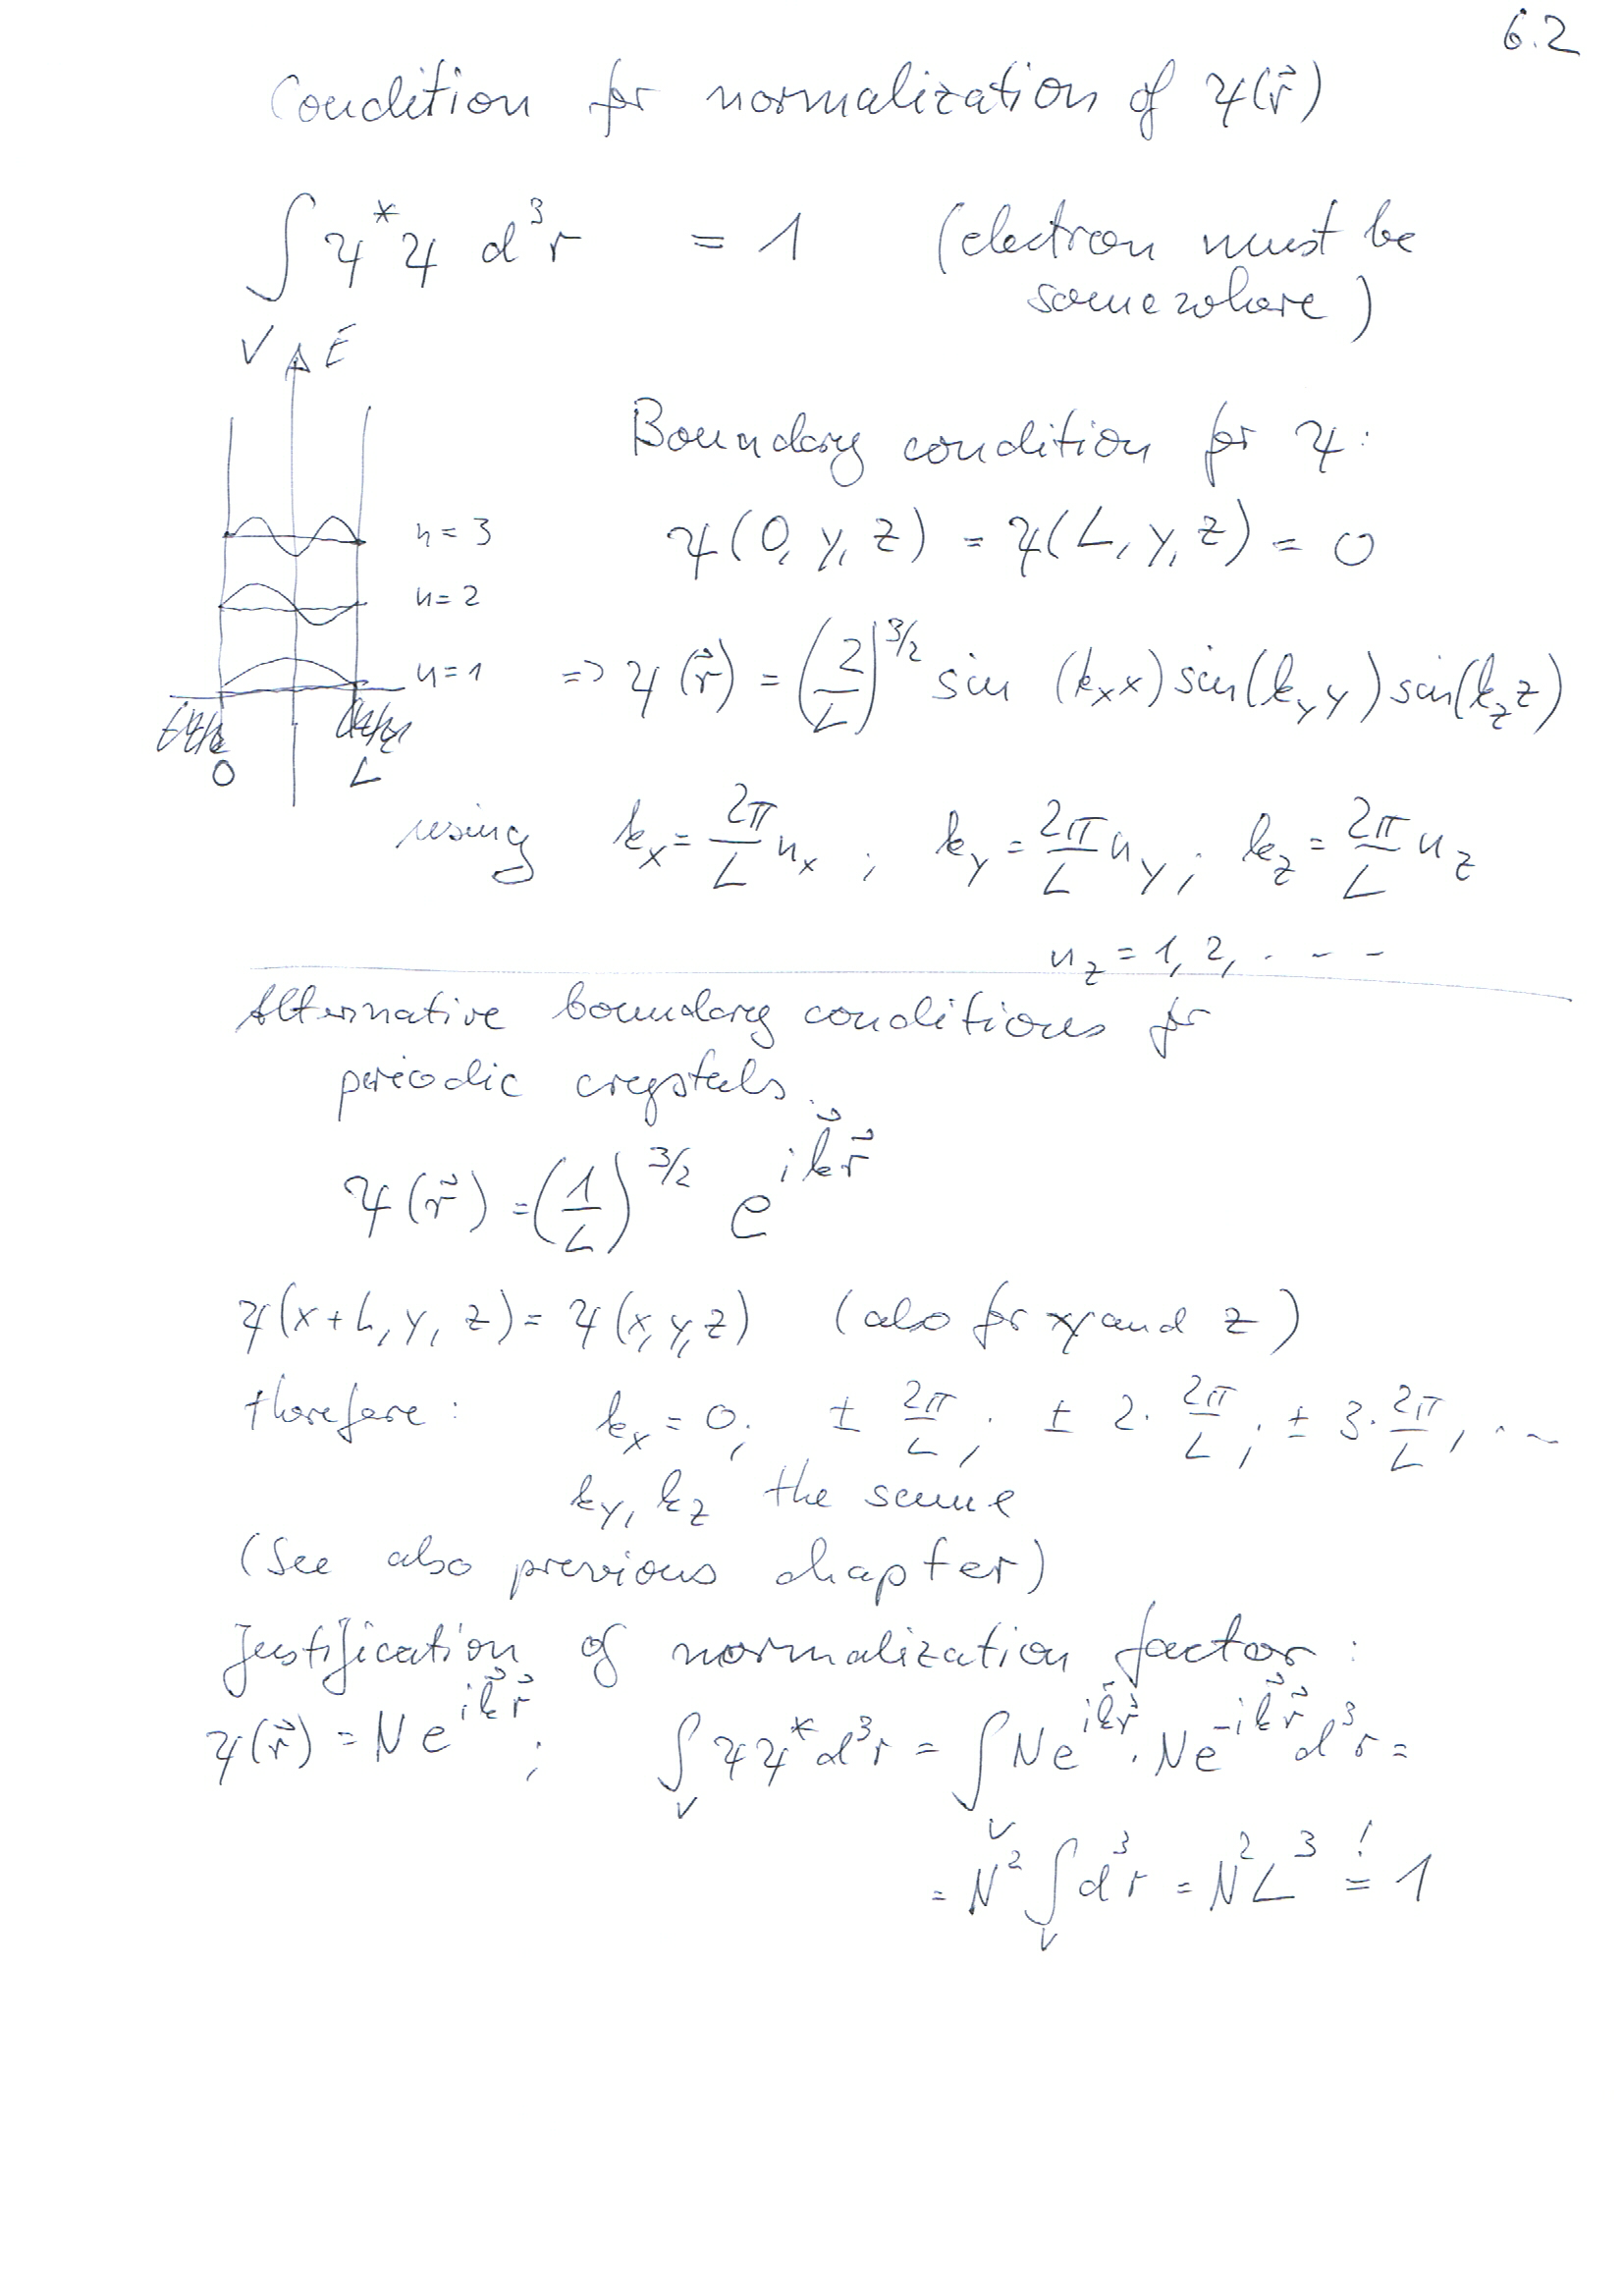 6.2
Condition for normalization of ψ(r⃗)
∫ ψ*ψ d³r = 1 (electron must be
somewhere)
V E
Boundary condition for ψ:
n = 3 ψ(0, y, z) = ψ(L, y, z) = 0
n = 2
n = 1 => ψ(r⃗) = (2/L)^3/2 sin (kₓx) sin(k_y y) sin(k_z z)
0 L
using kₓ = 2π/L nₓ ; k_y = 2π/L n_y ; k_z = 2π/L n_z
n_z = 1, 2, . - -
Alternative boundary conditions for
periodic crystals.
ψ(r⃗) = (1/L)^3/2 e^ik⃗r⃗
ψ(x+L, y, z) = ψ(x, y, z) (also for y and z)
therefore: kₓ = 0; ± 2π/L ; ± 2·2π/L ; ± 3·2π/L , ...
k_y, k_z the same
(See also previous chapter)
Justification of normalization factor:
ψ(r⃗) = N e^ik⃗r⃗ ; ∫_V ψψ* d³r = ∫_V N e^ik⃗r⃗ · N e^-ik⃗r⃗ d³r =
= N² ∫_V d³r = N²L³ =! 1